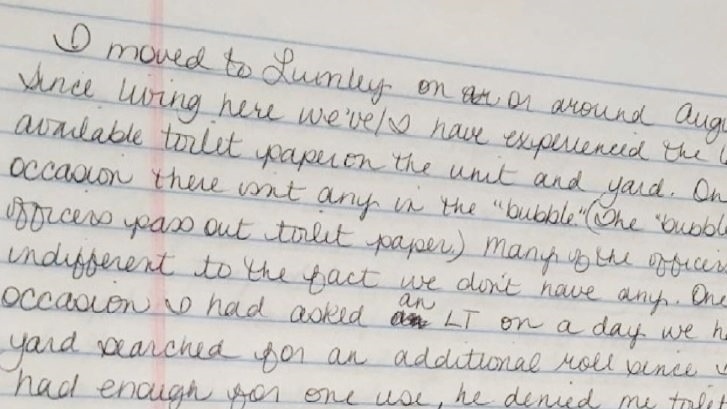 I moved to Lumley on or around Aug
Since living here we've/I have experienced the
available toilet paper on the unit and yard. On
occasion there isn't any in the "bubble" (The "bubble
officers pass out toilet paper.) Many of the officers
indifferent to the fact we don't have any. On
occasion I had asked an LT on a day we h
yard searched for an additional roll since
had enough for one use, he denied me toilet